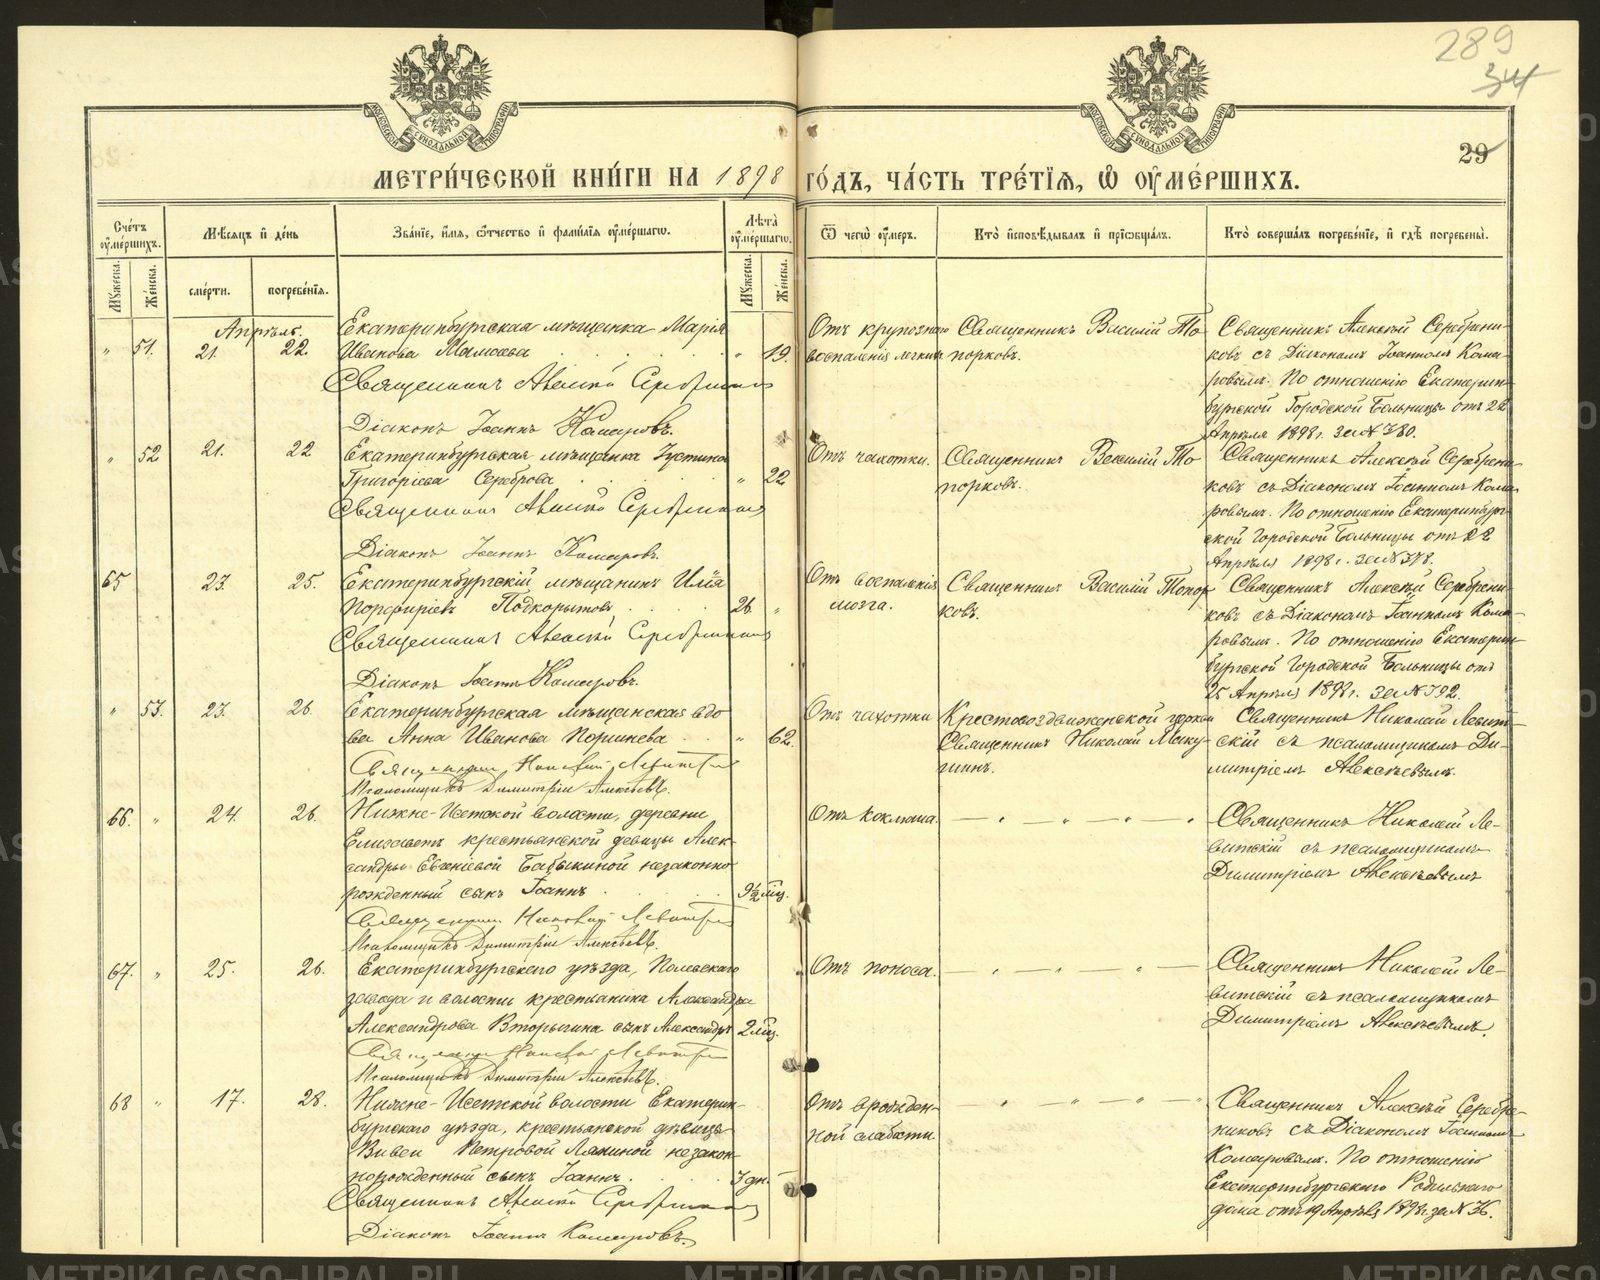 289
34
29
МЕТРИ́ЧЕСКОЙ КНИ́ГИ НА 1898 ГО́ДЪ, ЧА́СТЬ ТРЕ́ТЇѦ, Ѡ ОУ҆МЕ́РШИХЪ.
Сче́тъ оу҆ме́ршихъ.
Мꙋ́жеска.
Же́нска.
Мѣ́сѧцъ и҆ де́нь
сме́рти.
погребе́нїѧ.
Зва́нїе, и҆́мѧ, ѻ҆́тчество и҆ фами́лїѧ оу҆ме́ршагѡ.
Лѣ́та оу҆ме́ршагѡ.
Мꙋ́жеска.
Же́нска.
Ѿ чегѡ̀ оу҆́меръ.
Кто̀ и҆сповѣ́дывалъ и҆ прїѡбща́лъ.
Кто̀ соверша́лъ погребе́нїе, и҆ гдѣ̀ погребены̀.
Апрѣль.
" 51. 21. 22.
Екатеринбургская мѣщанка Марія
Иванова Мамаева " 19.
Священникъ Алексѣй Серебренниковъ
Діаконъ Іоаннъ Комаровъ.
Отъ крупознаго
воспаленія легкихъ
Священникъ Василій То-
порковъ.
Священникъ Алексѣй Серебрени-
ковъ съ Діакономъ Іоанномъ Кома-
ровымъ. По отношенію Екатерин-
бургской Городской Больницы отъ 22
Апрѣля 1898 г. за №380.
" 52 21. 22
Екатеринбургская мѣщанка Іустина
Григоріева Сереброва " 22
Священникъ Алексѣй Серебренниковъ
Діаконъ Іоаннъ Комаровъ.
Отъ чахотки.
Священникъ Василій То
порковъ.
Священникъ Алексѣй Серебрени-
ковъ съ Діакономъ Іоанномъ Кома-
ровымъ. По отношенію Екатеринбург-
ской Городской Больницы отъ 22
Апрѣля 1898 г. за №378.
65 23. 25.
Екатеринбургскій мѣщанинъ Илія
Порфиріевъ Подкорытовъ 26. "
Священникъ Алексѣй Серебренниковъ
Діаконъ Іоаннъ Комаровъ.
Отъ воспаленія
мозга.
Священникъ Василій Топор
ковъ.
Священникъ Алексѣй Серебрени-
ковъ съ Діакономъ Іоанномъ Кома-
ровымъ. По отношенію Екатерин-
бургской Городской Больницы отъ
25 Апрѣля 1898 г. за №392.
" 53. 23. 26.
Екатеринбургская мѣщанская вдо
ва Анна Иванова Поршнева " 62.
Священникъ Николай Левитскій
Псаломщикъ Димитрій Алексѣевъ.
Отъ чахотки
Крестовоздвиженской церкви
Священникъ Николай Мику-
шинъ.
Священникъ Николай Левит-
скій съ псаломщикомъ Ди-
митріемъ Алексѣевымъ.
66. " 24. 26.
Нижне-Исетской волости, деревни
Елисаветъ крестьянской девицы Алек-
сандры Евгеніевой Бабыкиной незаконно
рожденный сынъ Іоаннъ 9½ мѣс.
Священникъ Николай Левитскій
Псаломщикъ Димитрій Алексѣевъ.
Отъ коклюша.
Священникъ Николай Ле-
витскій съ псаломщикомъ
Димитріемъ Алексѣевымъ
67. " 25. 26.
Екатеринбургскаго уѣзда, Полевскаго
завода и волости крестьянина Александра
Александрова Вторыгина сынъ Александръ 2 мѣс.
Священникъ Николай Левитскій
Псаломщикъ Димитрій Алексѣевъ.
Отъ поноса.
Священникъ Николай Ле-
витскій съ псаломщикомъ
Димитріемъ Алексѣевымъ.
68 " 17. 28.
Нижне-Исетской волости Екатерин-
бургскаго уѣзда, крестьянской дѣвицы
Вивеи Петровой Лякиной незакон-
норожденный сынъ Іоаннъ. 3 дн.
Священникъ Алексѣй Серебренниковъ
Діаконъ Іоаннъ Комаровъ.
Отъ врожден-
ной слабости
Священникъ Алексѣй Серебре-
никовъ съ Діакономъ Іоанномъ
Комаровымъ. По отношенію
Екатеринбургскаго Родильнаго
дома отъ 19 Апрѣля 1898 г. за №36.
METRIKI.GASO-URAL.RU